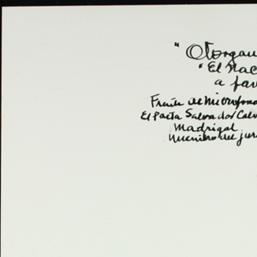 "Otorgan
"El Nac
a fav
Frente al micrófono
El Poeta Salvador Calv
Madrigal
miembro del jur